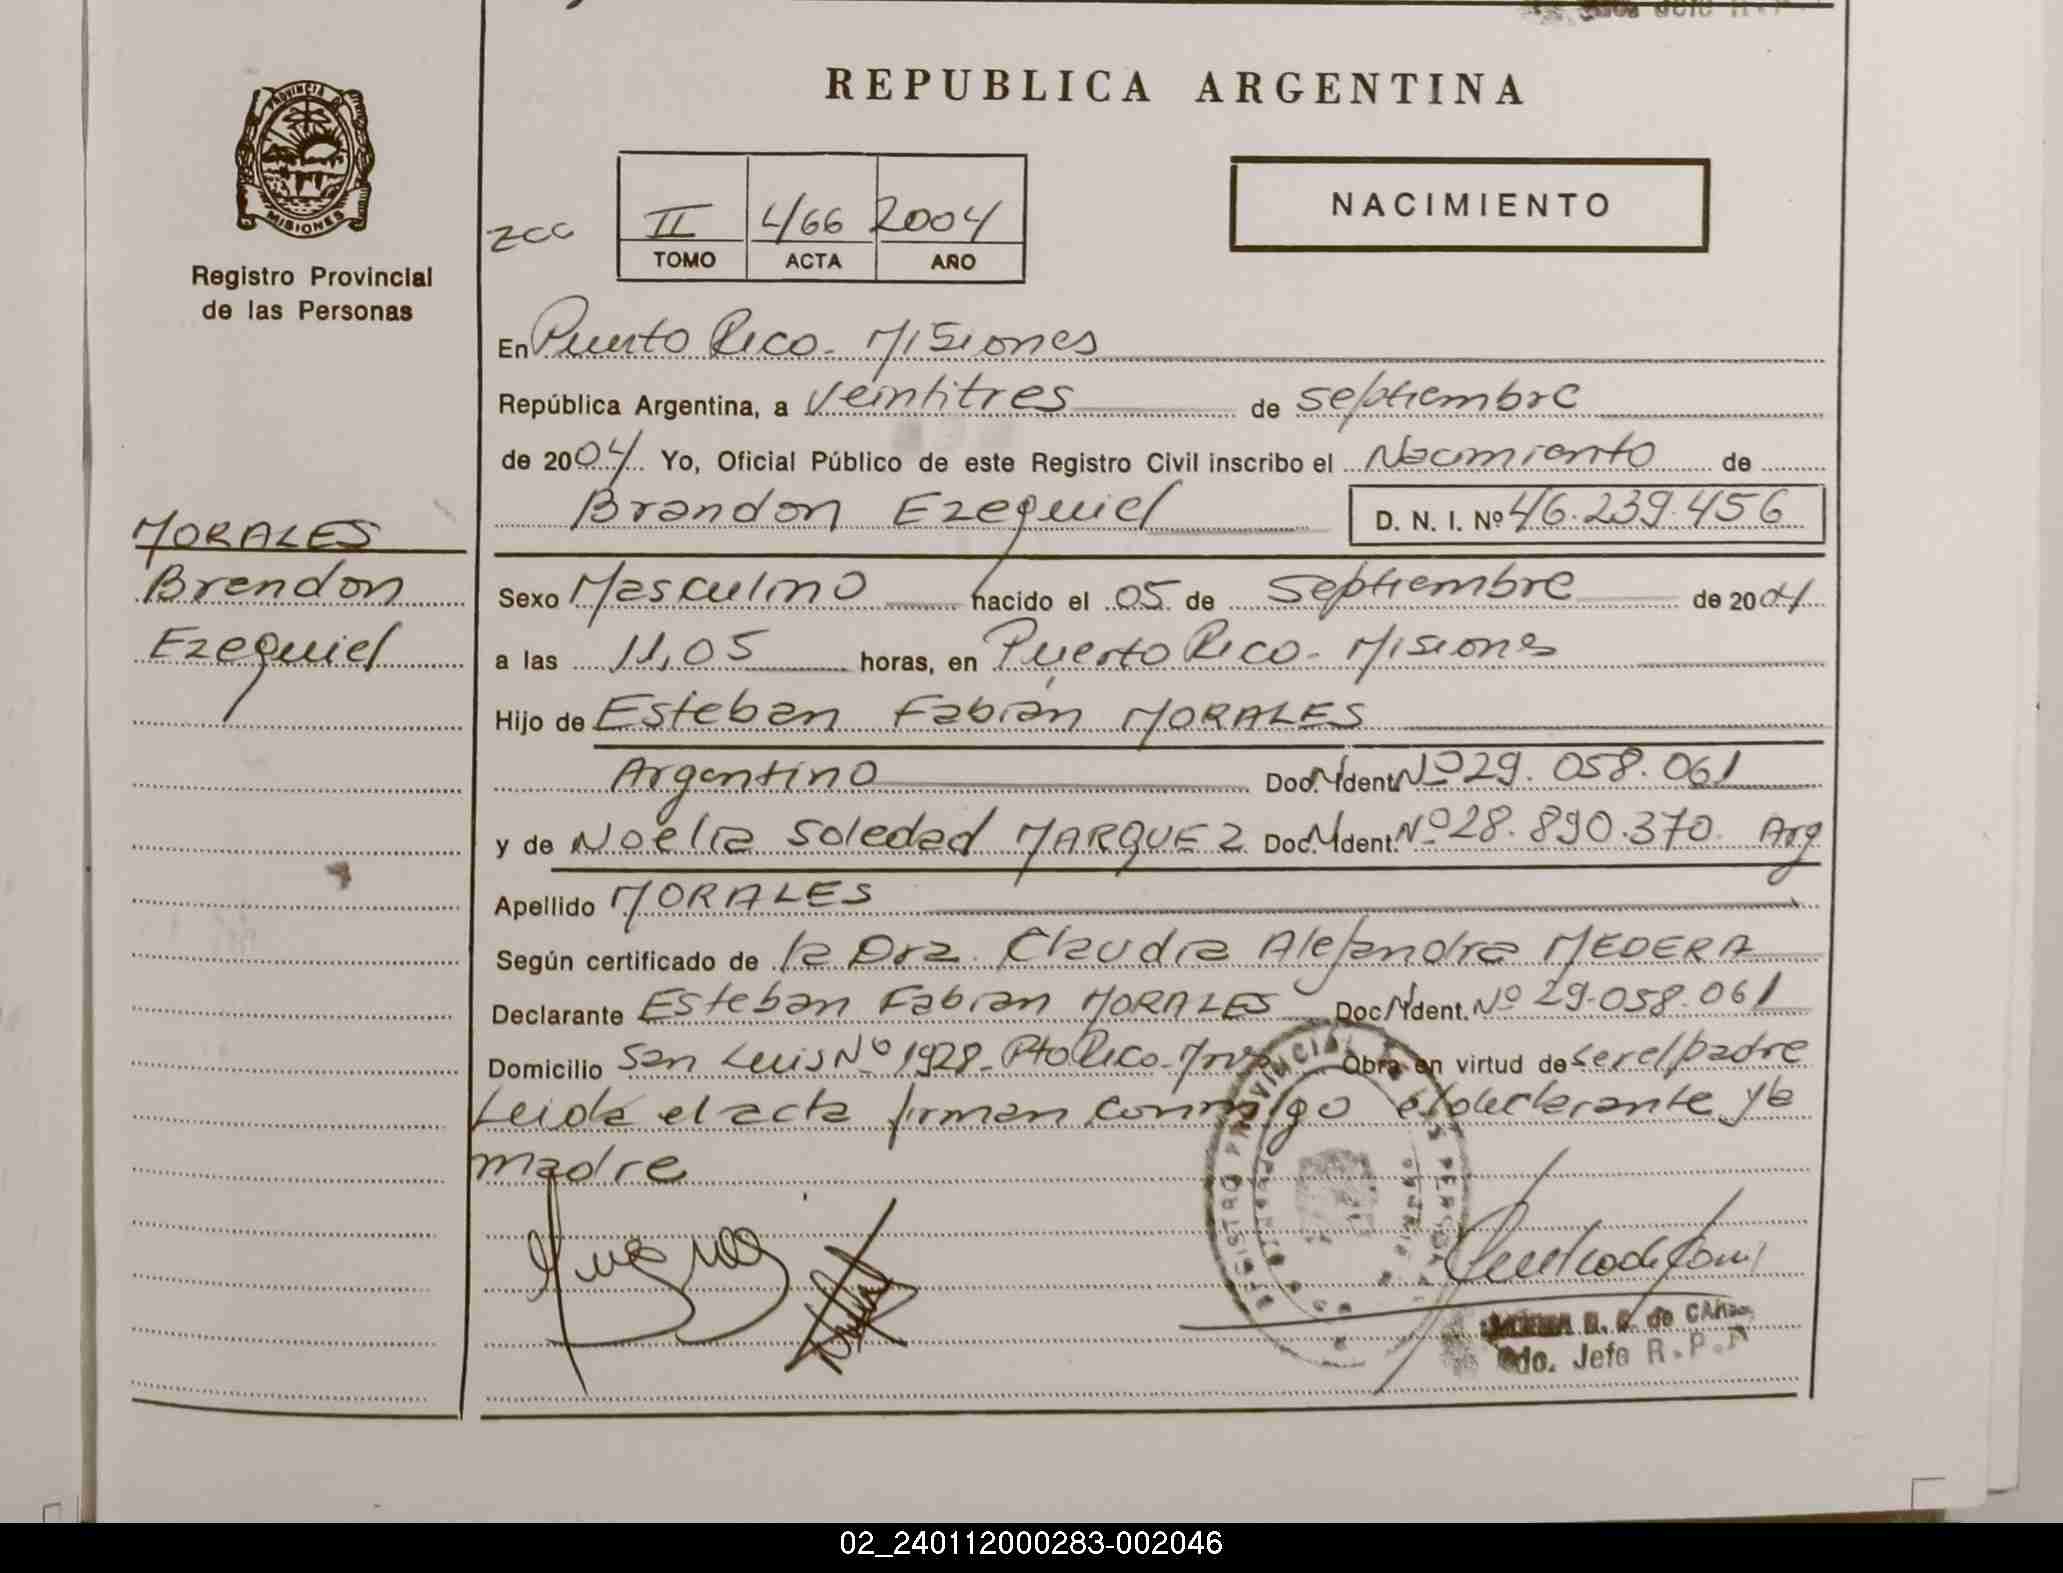 REPUBLICA ARGENTINA
PROVINCIA DE
MISIONES
Registro Provincial
de las Personas
II 466 2004
TOMO ACTA AÑO
NACIMIENTO
En Puerto Rico - Misiones
República Argentina, a veintitres de septiembre
de 2004 Yo, Oficial Público de este Registro Civil inscribo el Nacimiento de
Brandon Ezequiel D. N. I. Nº 46.239.456
MORALES
Brandon
Ezequiel
Sexo Masculino nacido el 05 de Septiembre de 2004
a las 11,05 horas, en Puerto Rico - Misiones
Hijo de Esteban Fabián MORALES
Argentino Doc. Ident. Nº 29.058.061
y de Noelia Soledad MARQUEZ Doc. Ident. Nº 28.890.370. Arg
Apellido MORALES
Según certificado de la Dra. Claudia Alejandra MEDERA
Declarante Esteban Fabian MORALES Doc. Ident. Nº 29.058.061
Domicilio San Luis Nº 1928 - Pto Rico - Mnes Obra en virtud de ser el padre
Leida el acta firman conmigo el declarante y la
madre
REGISTRO PROVINCIAL DE LAS PERSONAS
de
Jefe R.P.P
02_240112000283-002046